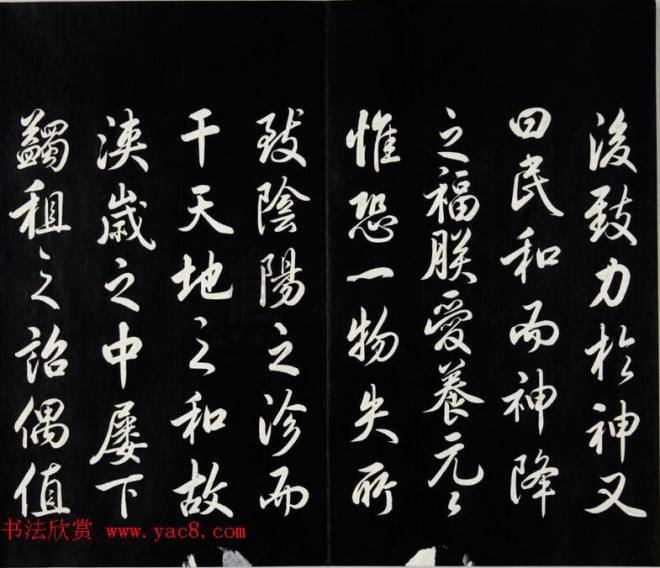 後致力於神又
曰民和而神降
之福朕愛養元々
惟恐一物失所
致陰陽之沴而
干天地之和故
浹歲之中屢下
蠲租之詔偶值
书法欣赏 www.yac8.com